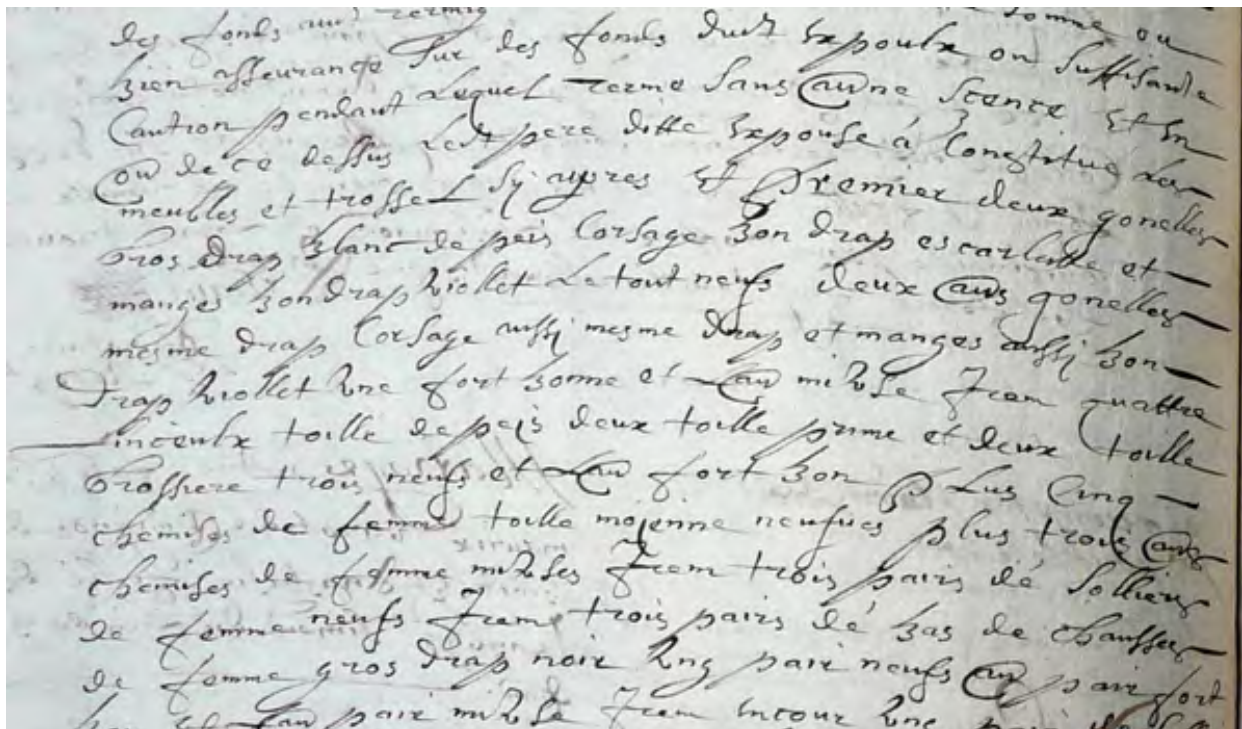 des fonds aud terme somme ou
bien asseurance sur des fonds dudt expoulx ou suffisante
Caution pendant lequel terme sans aulne scence Et en
ou de ce dessus ledt pere ditte expouse à Constitue les
meubles et trossel sy apres Et premier deux gonelles
gros drap blanc de peis Corsage bon drap escarlatte et
manges bon drap viollet le tout neufs deux aus gonelles
mesme drap Corsage aussj mesme drap et manges aussj bon
drap viollet vne fort bonne et lau mi vsée Jtem quattre
linceulx toille de peis deux toille prime et deux toille
grossiere trois neufs et lau fort bon plus Cinq
chemises de femme toille moienne neufues plus trois aus
chemises de femme mi vses Jtem trois pairs de solliers
de femme neufs Jtem trois pairs de bas de chausses
de femme gros drap noir vng pair neufs au pair fort
et lau pair mi vse Jtem encour vne